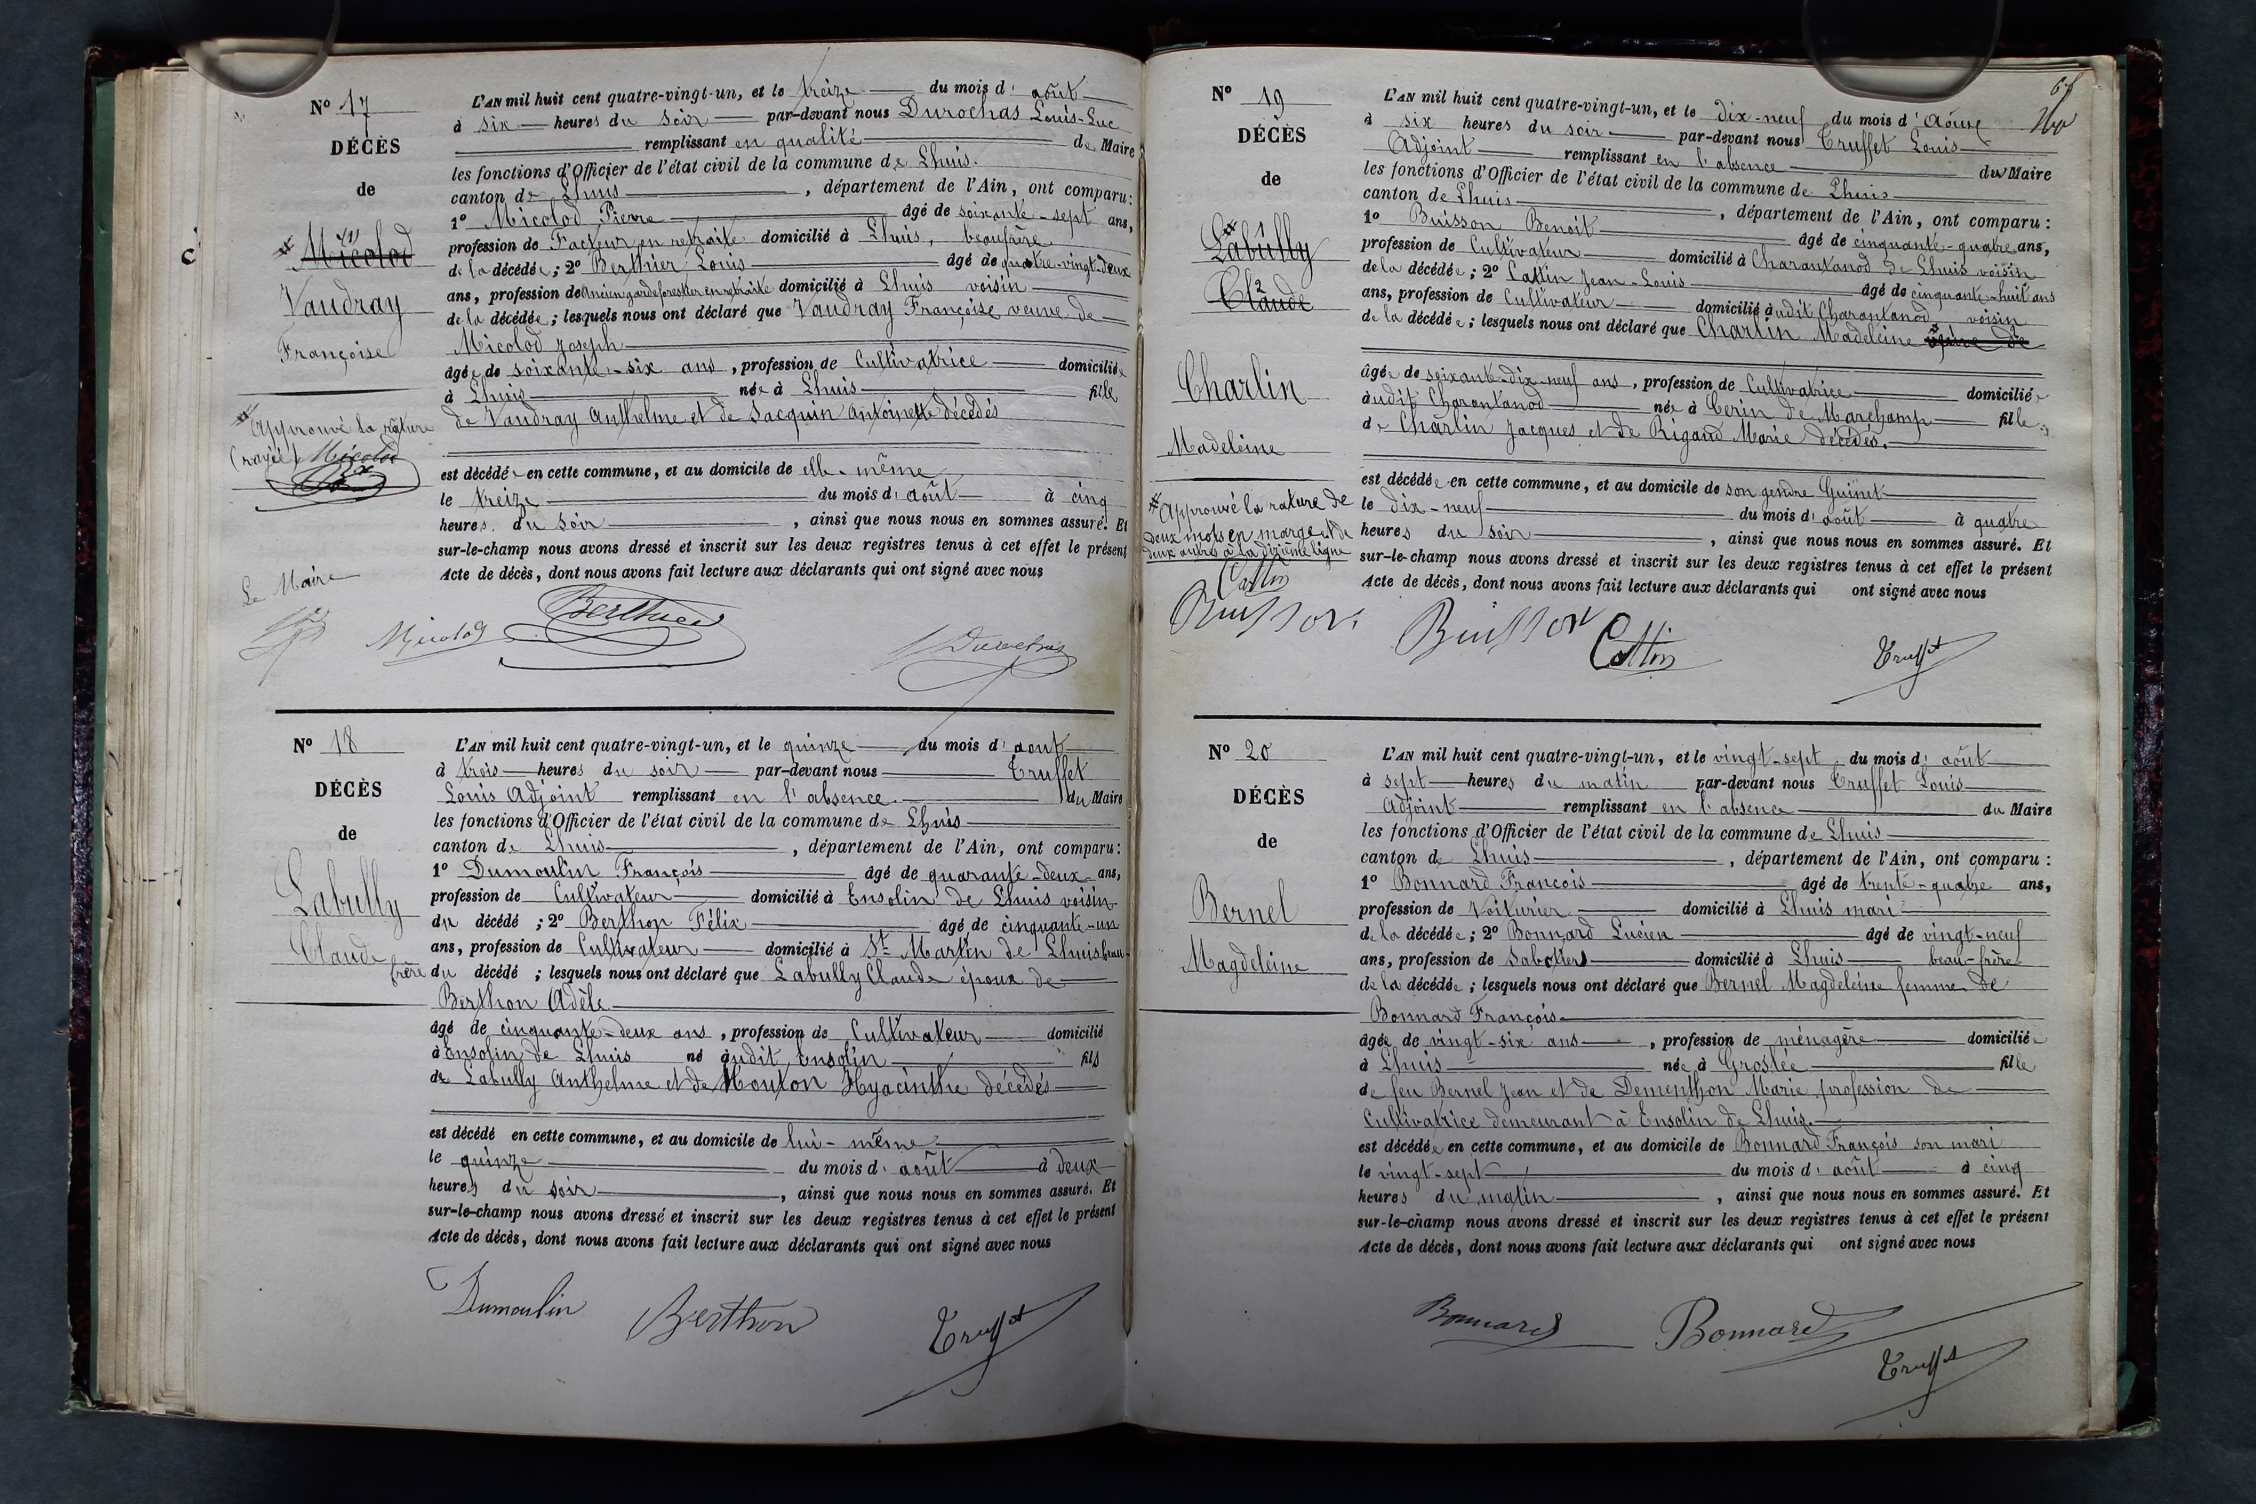 Nº 17
DÉCÈS
de
# (1)
Micolod
Vaudray
Françoise
# Approuvé la rature
(rayée) Micolod
Le Maire
L'AN mil huit cent quatre-vingt-un, et le treize du mois d' août
à six heures du soir par-devant nous Durochas Louis-Luc
remplissant en qualité de Maire
les fonctions d'Officier de l'état civil de la commune de Lhuis.
canton de Lhuis, département de l'Ain, ont comparu:
1º Micolod Pierre âgé de soixante-sept ans,
profession de Facteur en retraite domicilié à Lhuis, beaufrère
de la décédée; 2º Berthier Louis âgé de quatre-vingt-deux
ans, profession de Ancien garde forestier en retraite domicilié à Lhuis voisin
de la décédée; lesquels nous ont déclaré que Vaudray Françoise veuve de
Micolod Joseph
âgée de soixante-six ans, profession de Cultivatrice domiciliée
à Lhuis née à Lhuis fille
de Vaudray Anthelme et de Jacquin Antoinette décédés
est décédée en cette commune, et au domicile de elle-même
le treize du mois d' août à cinq
heures du soir, ainsi que nous nous en sommes assuré. Et
sur-le-champ nous avons dressé et inscrit sur les deux registres tenus à cet effet le présent
Acte de décès, dont nous avons fait lecture aux déclarants qui ont signé avec nous
Micolod Berthier Durochas
Nº 18
DÉCÈS
de
Labully
Claude
L'AN mil huit cent quatre-vingt-un, et le quinze du mois d' aout
à trois heures du soir par-devant nous Truffet
Louis Adjoint remplissant en l'absence du Maire
les fonctions d'Officier de l'état civil de la commune de Lhuis
canton de Lhuis, département de l'Ain, ont comparu:
1º Dumoulin François âgé de quarante-deux ans,
profession de Cultivateur domicilié à Ensolin de Lhuis voisin
du décédé; 2º Berthon Félix âgé de cinquante-un
ans, profession de Cultivateur domicilié à St. Martin de Lhuis beau-
frère du décédé; lesquels nous ont déclaré que Labully Claude époux de
Berthon Adèle
âgé de cinquante-deux ans, profession de Cultivateur domicilié
à Ensolin de Lhuis né audit Ensolin fils
de Labully Anthelme et de Mouton Hyacinthe décédés
est décédé en cette commune, et au domicile de lui-même
le quinze du mois d' août à deux
heures du soir, ainsi que nous nous en sommes assuré. Et
sur-le-champ nous avons dressé et inscrit sur les deux registres tenus à cet effet le présent
Acte de décès, dont nous avons fait lecture aux déclarants qui ont signé avec nous
Dumoulin Berthon Truffet
Nº 19
DÉCÈS
de
#
Labully
2
Claude
Charlin
Madeleine
# Approuvé la rature de
deux mots en marge et de
deux autres à la dixième ligne
Cottin
Buisson
L'AN mil huit cent quatre-vingt-un, et le dix-neuf du mois d' Aôut
à six heures du soir par-devant nous Truffet Louis
Adjoint remplissant en l'absence du Maire
les fonctions d'Officier de l'état civil de la commune de Lhuis
canton de Lhuis, département de l'Ain, ont comparu:
1º Buisson Benoit âgé de cinquante-quatre ans,
profession de Cultivateur domicilié à Charantanod de Lhuis voisin
de la décédée; 2º Cottin Jean-Louis âgé de cinquante-huit ans
ans, profession de Cultivateur domicilié audit Charantanod voisin
de la décédée; lesquels nous ont déclaré que Charlin Madeleine
âgée de soixante-dix-neuf ans, profession de Cultivatrice domiciliée
audit Charantanod née à Cerin de Marchamp fille
de Charlin Jacques et de Rigaud Marie décédés.
est décédée en cette commune, et au domicile de son gendre Guinet
le dix-neuf du mois d' août à quatre
heures du soir, ainsi que nous nous en sommes assuré. Et
sur-le-champ nous avons dressé et inscrit sur les deux registres tenus à cet effet le présent
Acte de décès, dont nous avons fait lecture aux déclarants qui ont signé avec nous
Buisson Cottin Truffet
Nº 20
DÉCÈS
de
Bernel
Magdeleine
L'AN mil huit cent quatre-vingt-un, et le vingt-sept du mois d' août
à sept heures du matin par-devant nous Truffet Louis
Adjoint remplissant en l'absence du Maire
les fonctions d'Officier de l'état civil de la commune de Lhuis
canton de Lhuis, département de l'Ain, ont comparu:
1º Bonnard François âgé de trente-quatre ans,
profession de Voiturier domicilié à Lhuis mari
de la décédée; 2º Bonnard Lucien âgé de vingt-neuf
ans, profession de Sabotier domicilié à Lhuis beau-frère
de la décédée; lesquels nous ont déclaré que Bernel Magdeleine femme de
Bonnard François
âgée de vingt-six ans, profession de ménagère domiciliée
à Lhuis née à Groslée fille
de feu Bernel Jean et de Dementhon Marie profession de
Cultivatrice demeurant à Ensolin de Lhuis.
est décédée en cette commune, et au domicile de Bonnard François son mari
le vingt-sept du mois d' août à cinq
heures du matin, ainsi que nous nous en sommes assuré. Et
sur-le-champ nous avons dressé et inscrit sur les deux registres tenus à cet effet le présent
Acte de décès, dont nous avons fait lecture aux déclarants qui ont signé avec nous
Bonnard Bonnard Truffet